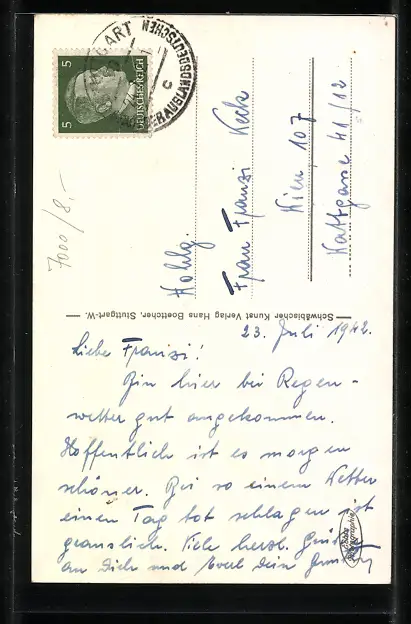 STUTTGART
AUSLANDSDEUTSCHEN
c
5
5
DEUTSCHES REICH
7000/8,-
Hohlg.
Frau Franzi Keck
Wien 107
41/12
Schwäbischer Kunst Verlag Hans Boettcher, Stuttgart-W.
23. Juli 1942.
Liebe Franzi!
Bin hier bei Regen-
wetter gut angekommen.
Hoffentlich ist es morgen
schöner. Bei so einem Wetter
einen Tag tot schlagen ist
grauslich. Viele herzl. Grüße
an Dich und Dein
Echte Photographie